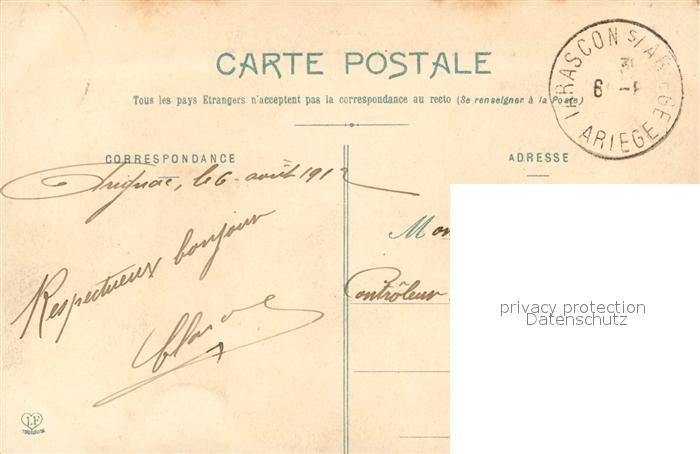 CARTE POSTALE
Tous les pays Etrangers n'acceptent pas la correspondance au recto (Se renseigner à la Poste)
TARASCON S/ ARIEGE
6
ARIEGE
CORRESPONDANCE
ADRESSE
Arignac, le 6 août 1912
Respectueux bonjour
Mon
Contrôleur
privacy protection
Datenschutz
LF